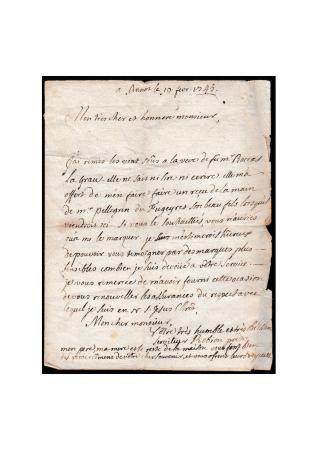 a le 17 fevr 1745.
Mon tres cher et honnoré monsieur,
J'ai remis les vint sous a la veve de feu mr
la Grave. elle ne sait ni lire ni ecrire. elle m'a
offert de m'en faire faire un reçu de la main
de mr pellegrin de Fugeyres son beau fils lorsqu'il
viendroit ici. si vous le souhaittes vous n'aurés
qua me le marquer. je heureux
de pouvoir vous temoigner par des marques plus
sensibles combien je suis devoüé a vôtre service.
je vous remercie de m'avoir fourni cette ocasion
de vous renouveller les assurances du respect avec
lequel je suis en N. S. Jesus Christ
Mon cher monsieur,
Vôtre très humble et très
serviteur
mon pere, ma mere et le reste de la maison vous font bien
des de vôtre souvenir, et vous offrent leurs respects